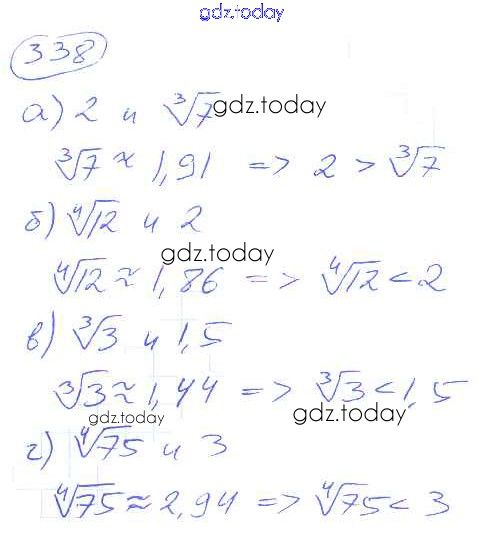 gdz.today
338
а) 2 и ∛7
gdz.today
∛7 ≈ 1,91 => 2 > ∛7
б) ∜12 и 2
gdz.today
∜12 ≈ 1,86 => ∜12 < 2
в) ∛3 и 1,5
∛3 ≈ 1,44 => ∛3 < 1,5
gdz.today gdz.today
г) ∜75 и 3
∜75 ≈ 2,94 => ∜75 < 3